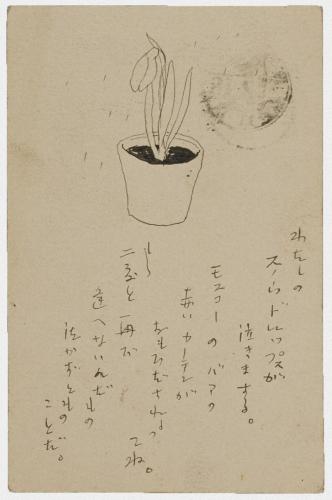 わたしの
スノウドロップスが
泣きまする。
モスコーのバアの
赤いカーテンが
おもひだされるつ
てね。
二度と再び
逢へないんだもの
泣かずともの
ことだ。